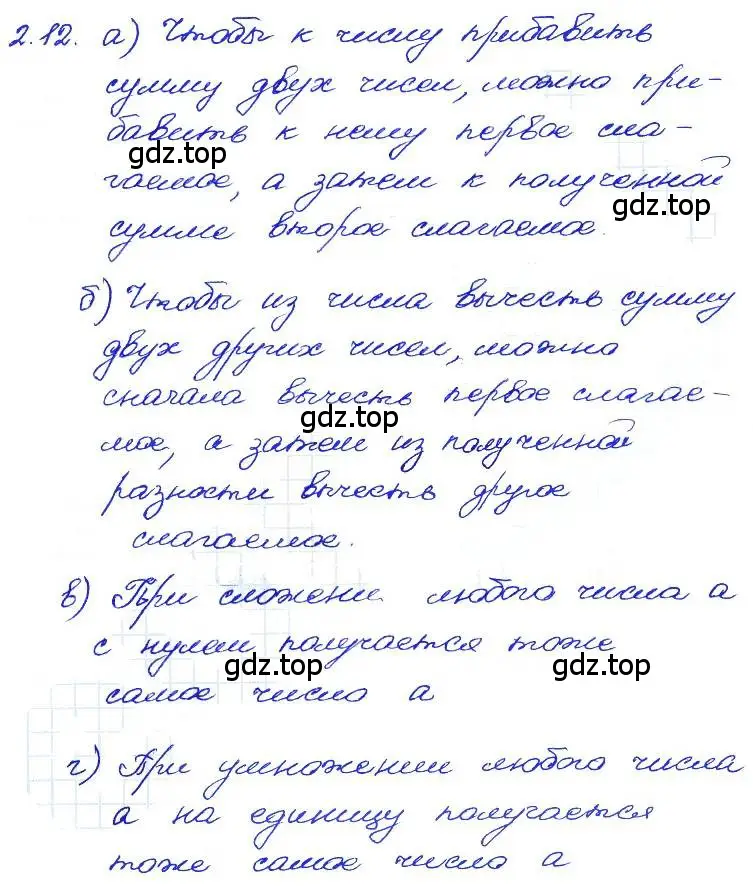 2.12. а) Чтобы к числу прибавить
сумму двух чисел, можно при-
бавить к нему первое сла-
gdz.top
гаемое, а затем к полученной
gdz.top
сумме второе слагаемое.
б) Чтобы из числа вычесть сумму
двух других чисел, можно
сначала вычесть первое слагае-
gdz.top
мое, а затем из полученной
разности вычесть другое
слагаемое.
в) При сложении любого числа а
с нулем получается тоже
gdz.top gdz.top
самое число а
г) При умножении любого числа
а на единицу получается
тоже самое число а